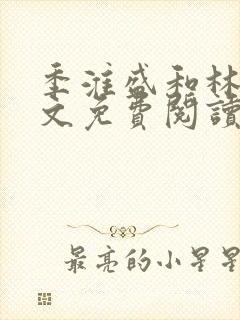 季淮盛和林
文免費閱讀
最亮的小星星